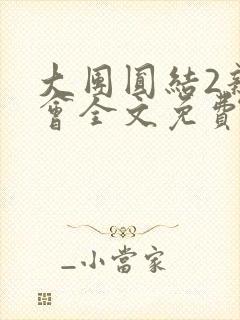 大团圆结2亲
会全文免费
_小当家